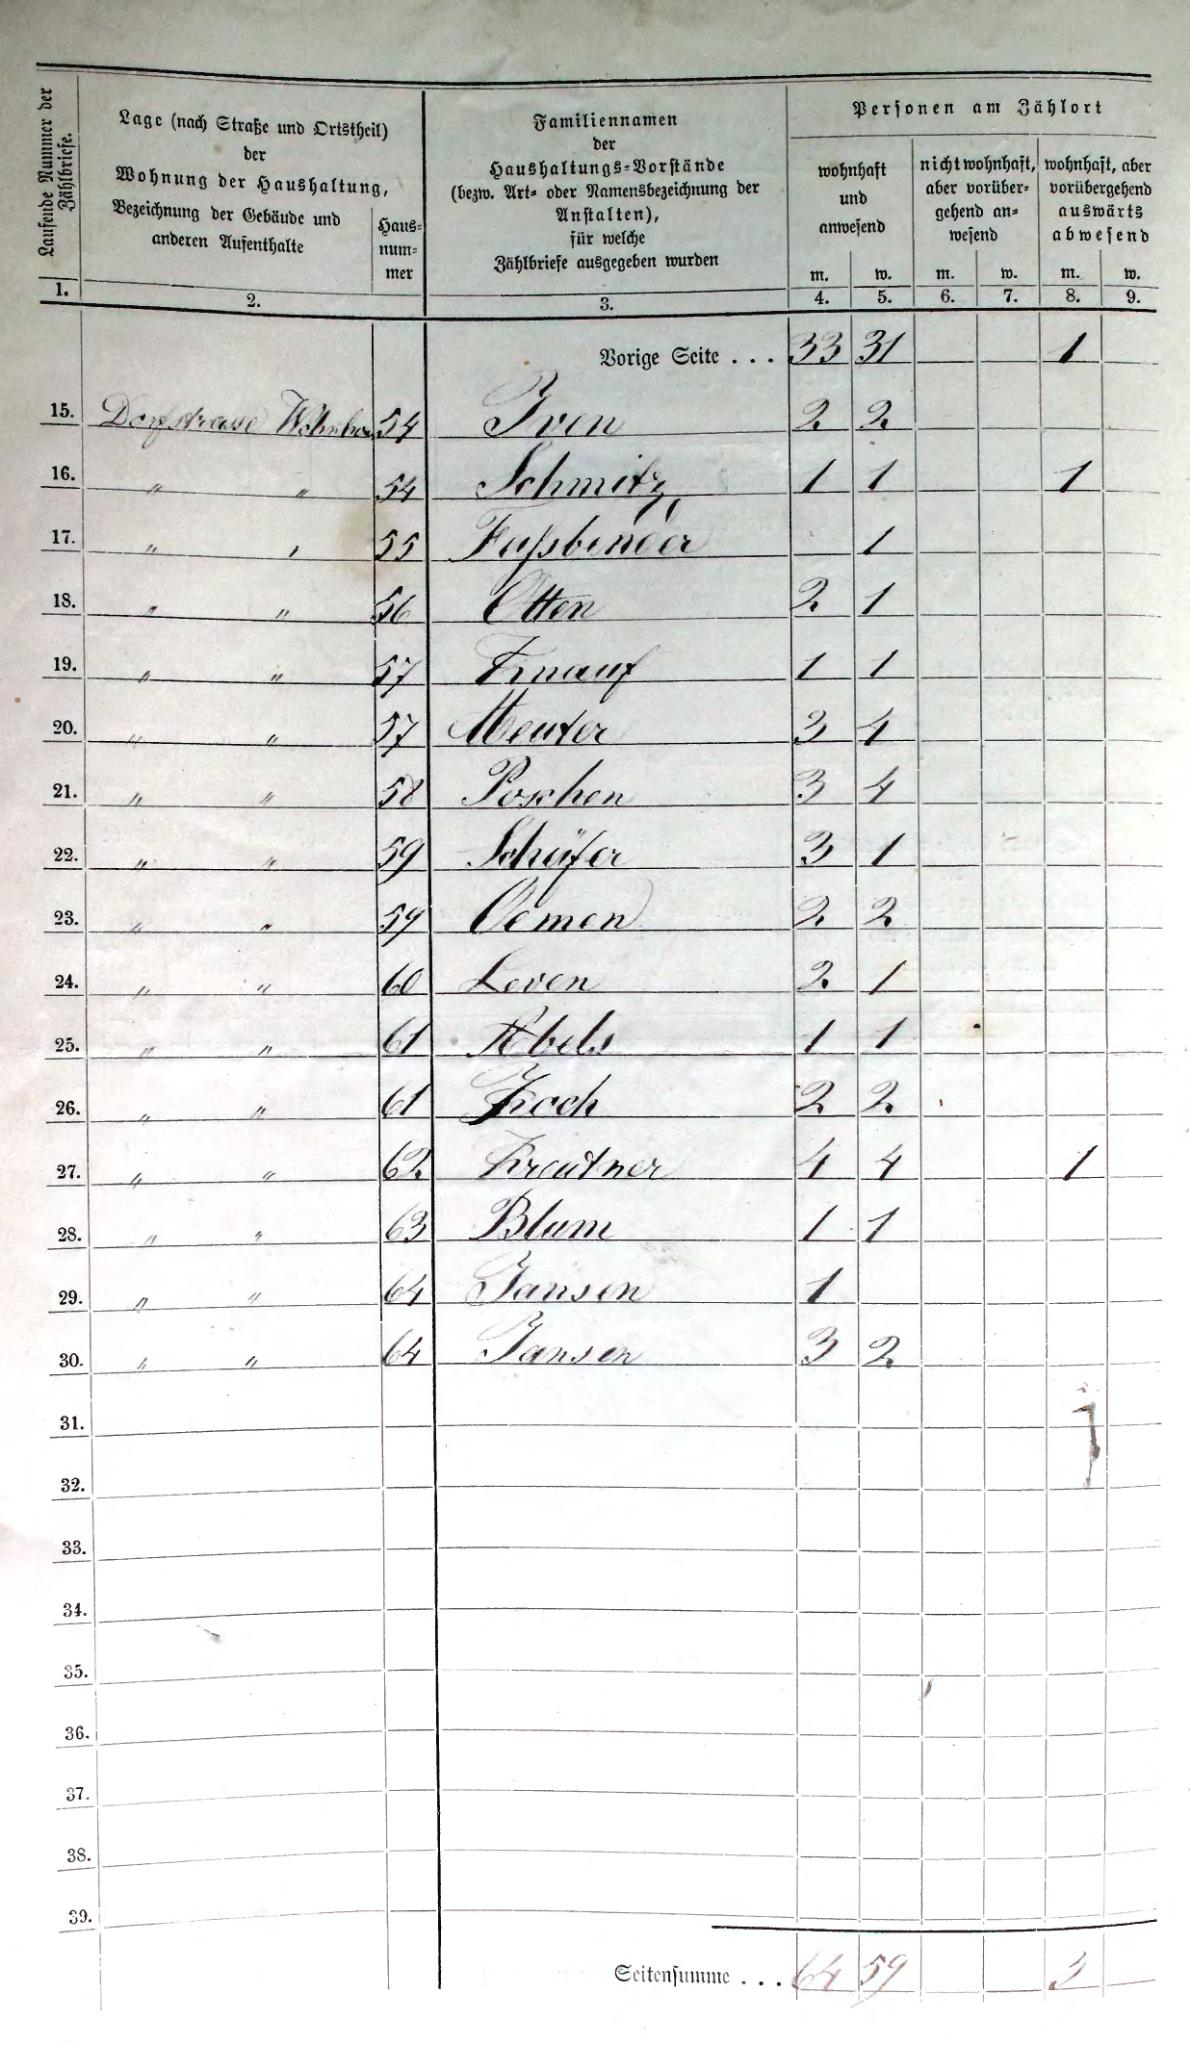 Laufende Nummer der Zählbriefe.
Lage (nach Straße und Ortstheil)
der
Wohnung der Haushaltung,
Bezeichnung der Gebäude und
anderen Aufenthalte
Haus-
num-
mer
Familiennamen
der
Haushaltungs-Vorstände
(bezw. Art- oder Namensbezeichnung der
Anstalten),
für welche
Zählbriefe ausgegeben wurden
Personen am Zählort
wohnhaft
und
anwesend
nicht wohnhaft,
aber vorüber-
gehend an-
wesend
wohnhaft, aber
vorübergehend
auswärts
abwesend
m. w. m. w. m. w.
1. 2. 3. 4. 5. 6. 7. 8. 9.
Vorige Seite . . . 33 31 1
15. Dorfstrasse Wohnhaus 54 Iven 2 2
16. " " 54 Schmitz 1 1 1
17. " " 55 Faßbender 1
18. " " 56 Otten 2 1
19. " " 57 Knauf 1 1
20. " " 57 Meuter 3 4
21. " " 58 Poschen 3 4
22. " " 59 Schäfer 3 1
23. " " 59 Oemen 2 2
24. " " 60 Leven 2 1
25. " " 61 Abels 1 1
26. " " 61 Koch 2 2
27. " " 62 Kreutner 4 4 1
28. " " 63 Blum 1 1
29. " " 64 Jansen 1
30. " " 64 Jansen 3 2
31.
32.
33.
34.
35.
36.
37.
38.
39.
Seitensumme . . . 64 59 3